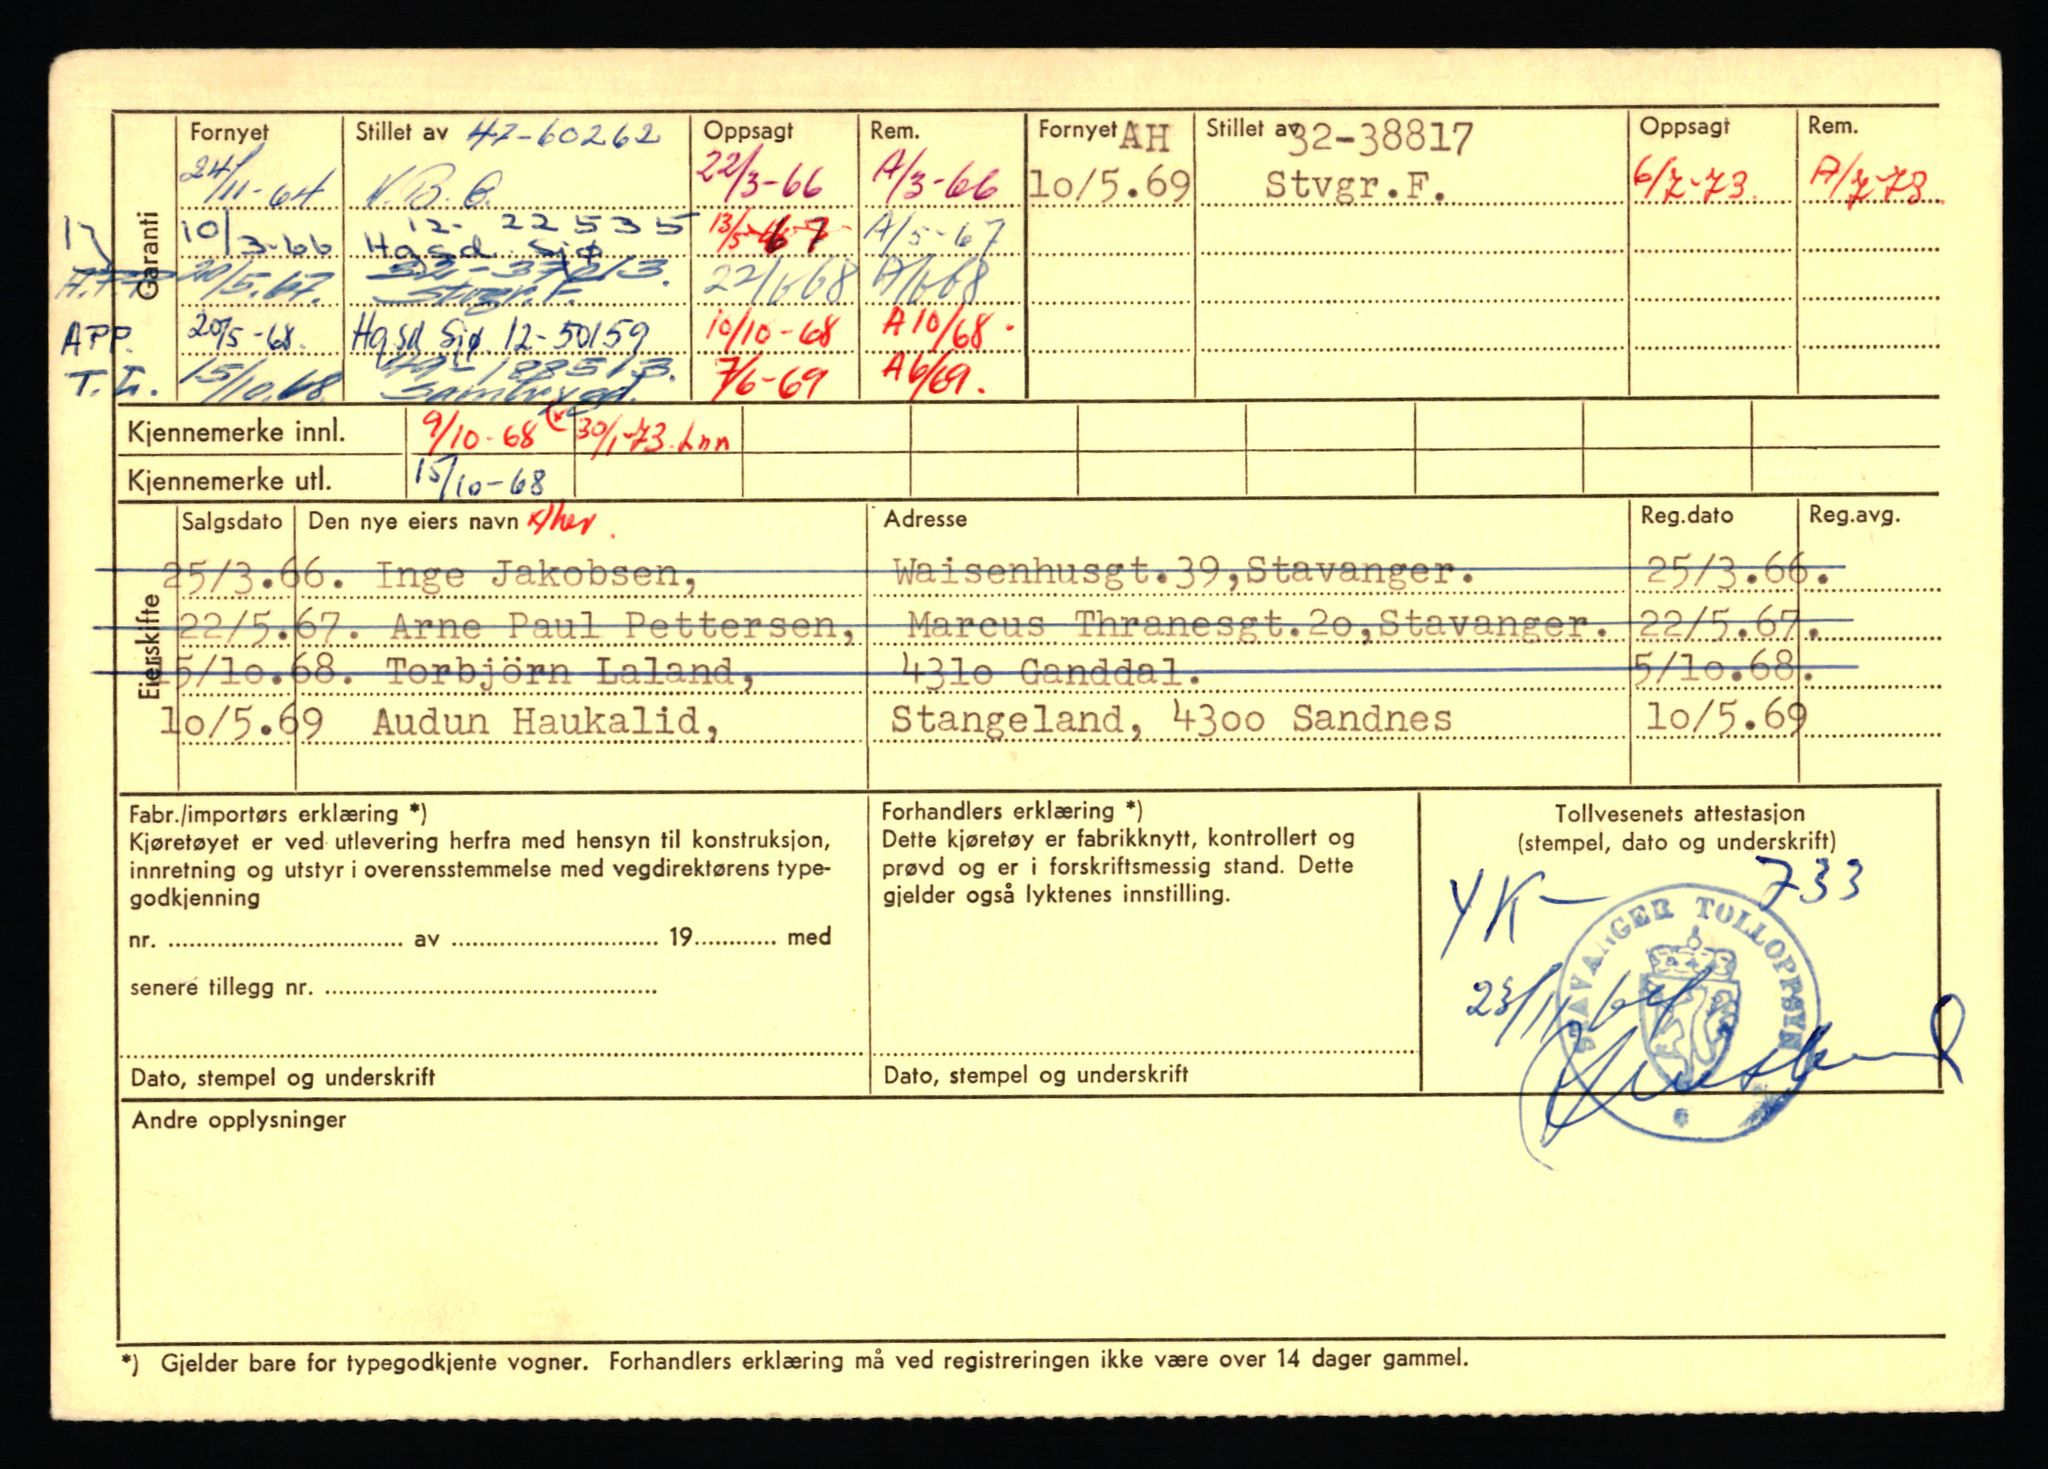 Garanti
Fornyet Stillet av 47-60262 Oppsagt Rem. Fornyet AH Stillet av 32-38817 Oppsagt Rem.
24/11-64 22/3-66 A/3-66 10/5.69 Stvgr.F. 6/7-73. A/7-73.
IJ 10/3-66 12-22535 Hgsd Sjø 13/5-67 A/5-67
20/5.67. Stvgr.F. A/6-68
APP. 20/5-68. Hgsd Sjø 12-50159 10/10-68 A 10/68.
T.L. 15/10.68 49-188513. Sambrygd. 7/6-69 A6/69.
Kjennemerke innl. 9/10-68 (x 30/1-73.
Kjennemerke utl. 15/10-68
Eierskifte
Salgsdato Den nye eiers navn Adresse Reg.dato Reg.avg.
25/3.66. Inge Jakobsen, Waisenhusgt.39,Stavanger. 25/3.66.
22/5.67. Arne Paul Pettersen, Marcus Thranesgt.2o,Stavanger. 22/5.67.
15/1o.68. Torbjörn Laland, 431o Ganddal. 5/1o.68.
1o/5.69 Audun Haukalid, Stangeland, 43oo Sandnes 1o/5.69
Fabr./importørs erklæring *)
Kjøretøyet er ved utlevering herfra med hensyn til konstruksjon,
innretning og utstyr i overensstemmelse med vegdirektørens type-
godkjenning
nr. .......... av .......... 19.......... med
senere tillegg nr. ..........
Dato, stempel og underskrift
Forhandlers erklæring *)
Dette kjøretøy er fabrikknytt, kontrollert og
prøvd og er i forskriftsmessig stand. Dette
gjelder også lyktenes innstilling.
Dato, stempel og underskrift
Tollvesenets attestasjon
(stempel, dato og underskrift)
YK- 733
STAVANGER TOLLOPPSYN
23/11 64
Andre opplysninger
*) Gjelder bare for typegodkjente vogner. Forhandlers erklæring må ved registreringen ikke være over 14 dager gammel.